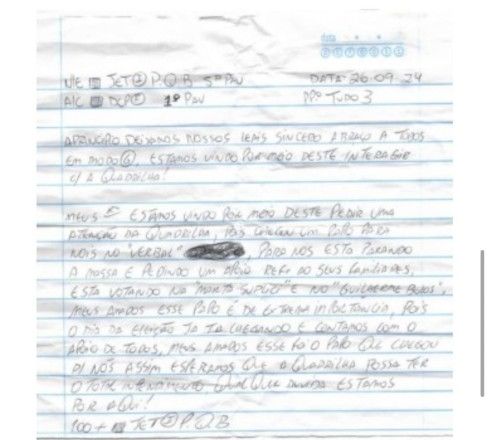 DATA: 26.09.24
1º PAV
PPº TUDO 3
A PRINCÍPIO DEIXAMOS NOSSOS LEAIS SINCERO ABRAÇO A TODOS
EM MODO G, ESTAMOS VINDO POR MEIO DESTE INTERAGIR
C/ A QUADRILHA!
MEUS ESTAMOS VINDO POR MEIO DESTE PEDIR UMA
ATENÇÃO DA QUADRILHA, POIS CHEGOU UM PAPO PARA
NOIS NO "VERBAL" PARA NOS ESTA PARANDO
A MASSA E PEDINDO UM APOIO REF. AO SEUS FAMILIARES,
ESTA VOTANDO NA "MARTA SUPLICI" E NO "GUILHERME BOLOS",
MEUS AMADOS ESSE PAPO É DE EXTREMA IMPORTANCIA, POIS
O DIA DA ELEIÇÃO TA CHEGANDO E CONTAMOS COM O
APOIO DE TODOS, MEUS AMADOS ESSE FOI O PAPO QUE CHEGOU
P/ NÓS ASSIM ESPERAMOS QUE A QUADRILHA POSSA TER
O TOTAL INTENDIMENTO QUALQUE DUVIDA ESTAMOS
POR AQUI!
100+ JET P Q B